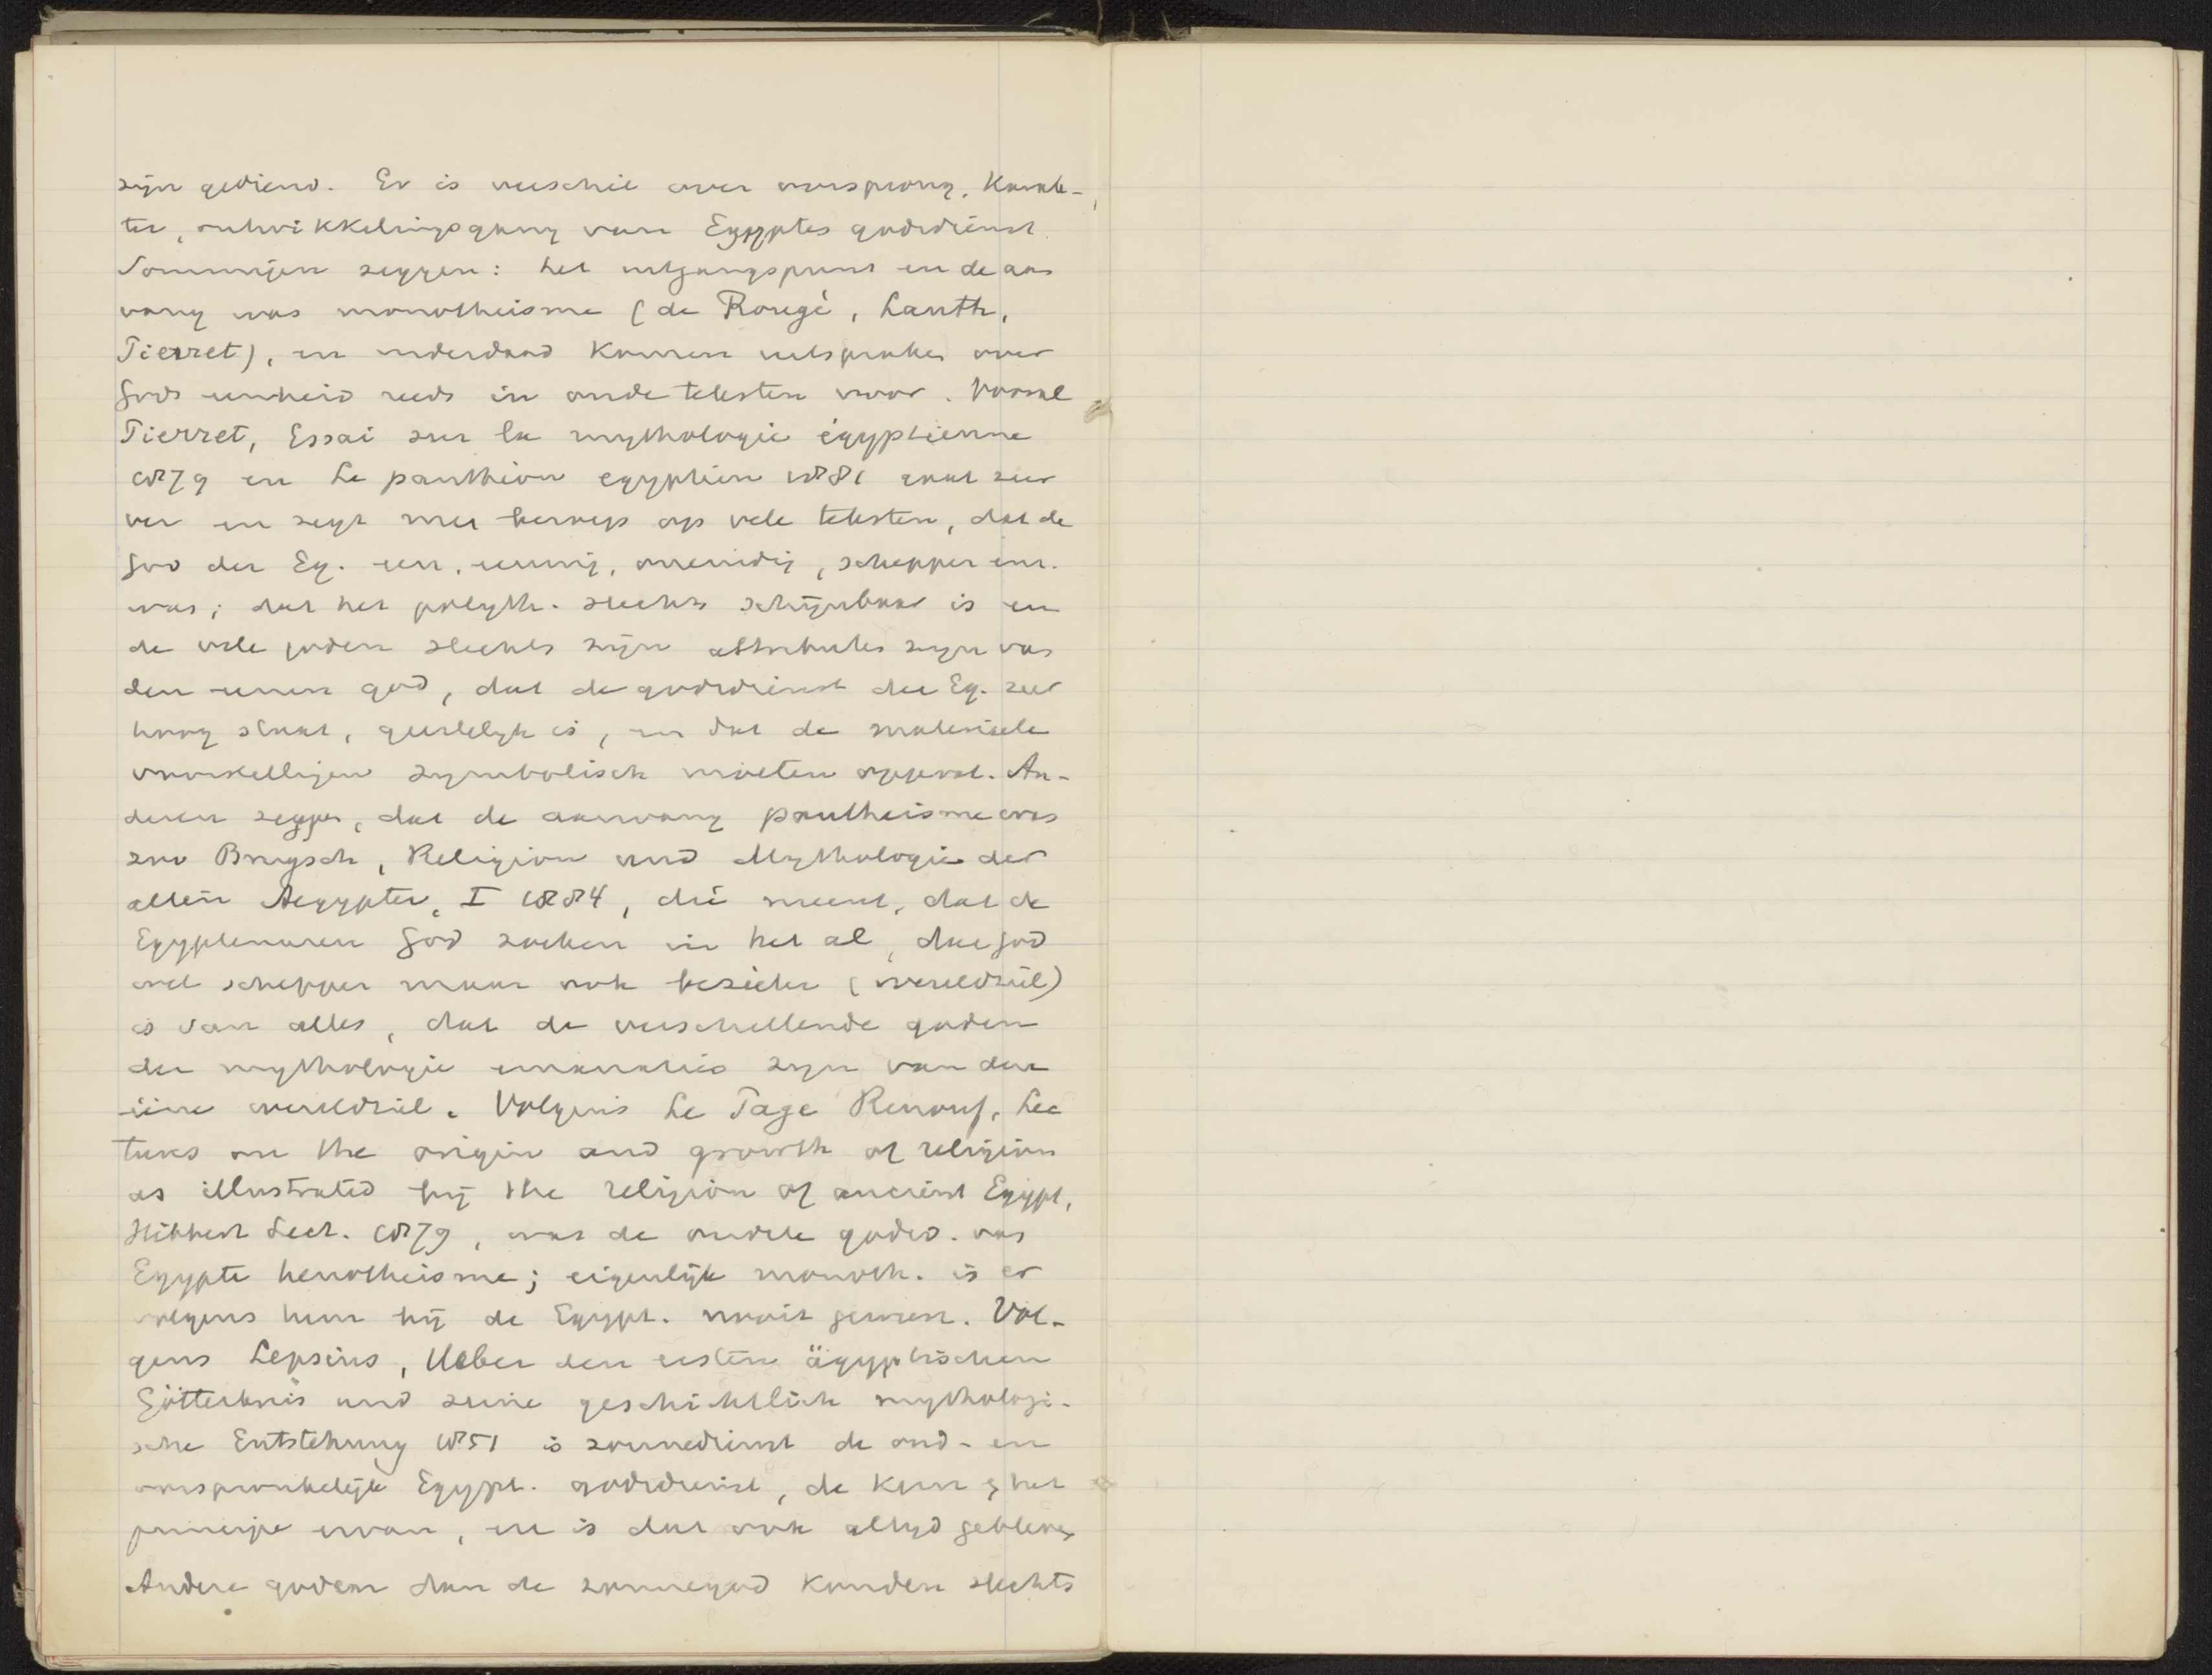 zijn gediend. Er is verschil over oorsprong, karak-
ter, ontwikkelingsgang van Egyptes godsdienst.
Sommigen zeggen: het uitgangspunt en de aan
vang was monotheisme (de Rougé, Lauth,
Pierret), en inderdaad komen uitspraken over
Gods eenheid reeds in oude teksten voor. Vooral
Pierret, Essai sur la mythologie égyptienne
1879 en Le panthéon egyptien 1881 gaat zeer
ver en zegt met beroep op vele teksten, dat de
God der Eg. een, eenig, oneindig, schepper enz.
was; dat het polyth. slechts schijnbaar is en
de vele goden slechts zijn attributen zijn van
den eenen god, dat de godsdienst der Eg. zeer
hoog staat, geestelijk is, en dat de materieele
voorstellingen symbolisch moeten opgevat. An-
deren zeggen, dat de aanvang pantheisme was
zoo Brugsch, Religion und Mythologie der
alten Aegypter, I 1884, die meent, dat de
Egyptenaren God zoeken in het al, dat god
wel schepper maar ook bezieler (wereldziel)
is van alles, dat de verschillende goden
der mythologie emanaties zijn van den
ééne wereldziel. Volgens Le Page Renouf, Lec
tures on the origin and growth of religion
as illustrated bij the religion of ancient Egypt,
Hibbert Lect. 1879, was de oudste godsd. van
Egypte henotheisme; eigenlijk monoth. is er
volgens hem bij de Egypt. nooit geweest. Vol-
gens Lepsius, Ueber den ersten ägyptischen
Götterkreis und seine geschichtlich mythologi-
sche Entstehung 1851 is zonnedienst de oud- en
oorspronkelijke Egypt. godsdienst, de kern & het
principe ervan, en is dat ook altijd gebleven
Andere goden dan de zonnegod konden slechts